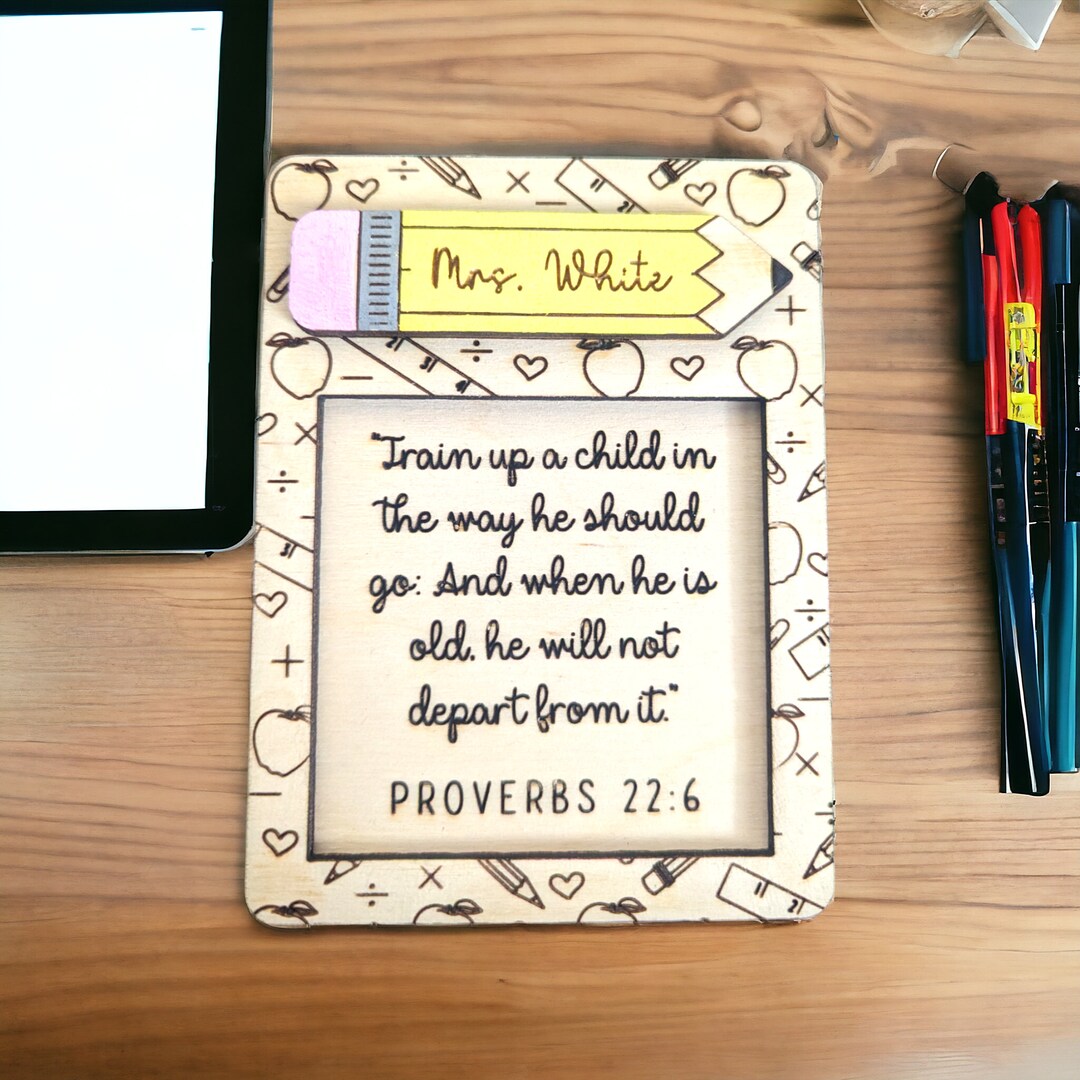 Mrs. White
"Train up a child in
the way he should
go: And when he is
old, he will not
depart from it."
PROVERBS 22:6